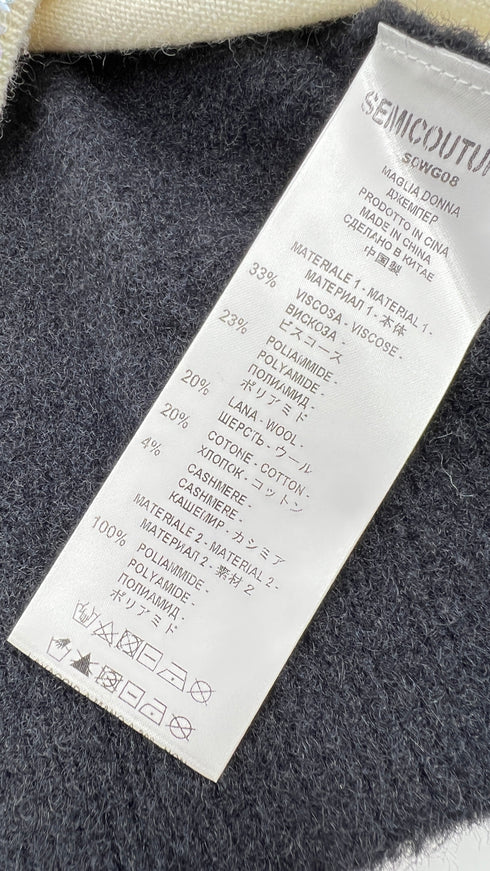 SEMICOUTUR
S6WG08
MAGLIA DONNA
ДЖЕМПЕР
PRODOTTO IN CINA
MADE IN CHINA
СДЕЛАНО В КИТАЕ
中国製
MATERIALE 1 - MATERIAL 1 -
МАТЕРИАЛ 1 - 本体
33% VISCOSA - VISCOSE -
ВИСКОЗА -
ビスコース
23% POLIAMMIDE -
POLYAMIDE -
ПОЛИАМИД -
ポリアミド
20% LANA - WOOL -
ШЕРСТЬ - ウール
20% COTONE - COTTON -
ХЛОПОК - コットン
4% CASHMERE -
CASHMERE -
КАШЕМИР - カシミア
MATERIALE 2 - MATERIAL 2 -
МАТЕРИАЛ 2 - 素材 2
100% POLIAMMIDE -
POLYAMIDE -
ПОЛИАМИД -
ポリアミド